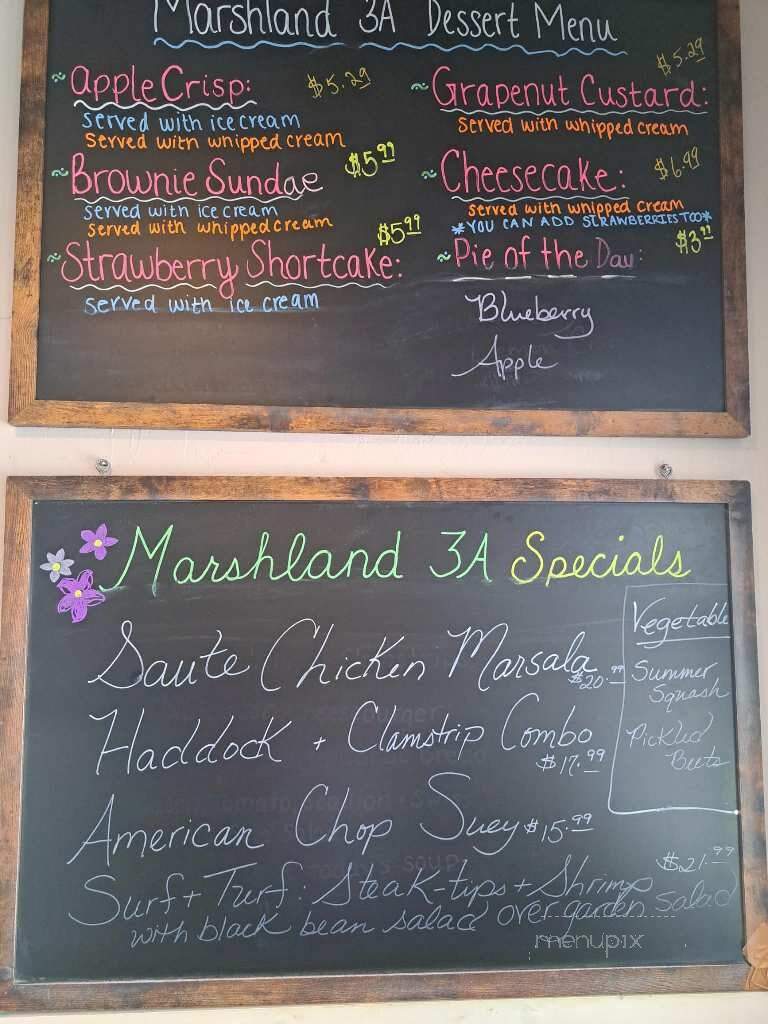 Marshland 3A Dessert Menu
~Apple Crisp: $5.29
served with ice cream
served with whipped cream
~Brownie Sundae $5.99
served with ice cream
served with whipped cream
~Strawberry Shortcake: $5.99
served with ice cream
~Grapenut Custard: $5.29
served with whipped cream
~Cheesecake: $6.99
served with whipped cream
*YOU CAN ADD STRAWBERRIES TOO*
~Pie of the Day: $3.99
Blueberry
Apple
Marshland 3A Specials
Saute Chicken Marsala $20.99
Haddock + Clamstrip Combo
$17.99
American Chop Suey $15.99
Surf + Turf: Steak-tips + Shrimp $21.99
with black bean salad over garden salad
Vegetable
Summer
Squash
Pickled
Beets
menupix